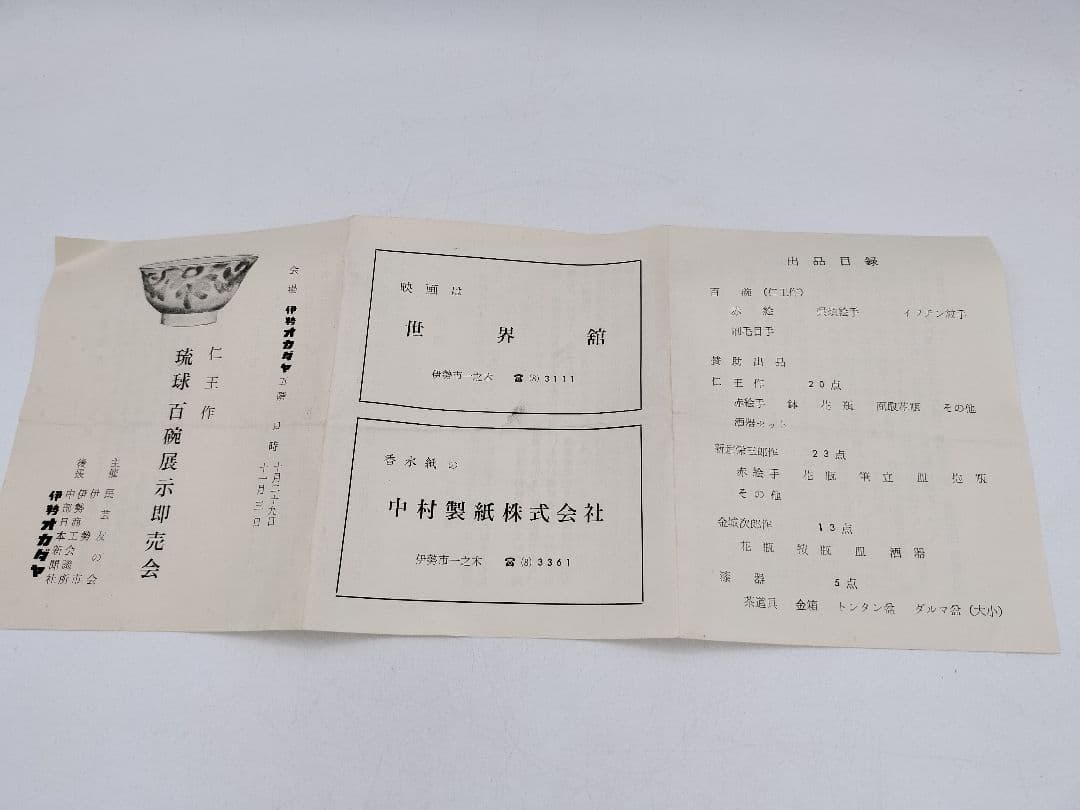 会場 伊勢オカダヤ 五階
日時 十月二十九日
十一月三日
仁王作
琉球百碗展示即売会
主催 民芸友の会
後援
伊勢市
伊勢商工会議所
中部日本新聞社
伊勢オカダヤ
映画は
世界舘
伊勢市一之木 ☎(8)3111
香水紙の
中村製紙株式会社
伊勢市一之木 ☎(8)3361
出品目録
百碗(仁王作)
赤絵 呉須絵手 イッチン紋手
刷毛目手
賛助出品
仁王作 20点
赤絵手 鉢 花瓶 面取花瓶 その他
酒器セット
新垣栄三郎作 23点
赤絵手 花瓶 筆立 皿 抱瓶
その他
金城次郎作 13点
花瓶 按瓶 皿 酒器
漆器 5点
茶道具 金箱 トンタン盆 ダルマ盆(大小)